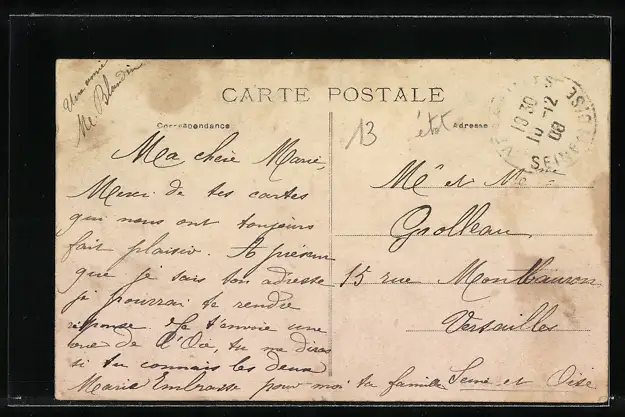 Une amie
M. Blandin
CARTE POSTALE
Correspondance
Adresse
13
état
18 30
10-12
08
SEINE-&-OISE
Ma chère Marie,
Merci de tes cartes
qui nous ont toujours
fait plaisir. A présent
que je sais ton adresse
je pourrai te rendre
réponse. Je t'envoie une
vue de l'Oie, tu me diras
si tu connais les deux
Marie Embrasse pour moi ta famille
Mr et Mme
Grolleau
15 rue Montbauron
Versailles
Seine et Oise